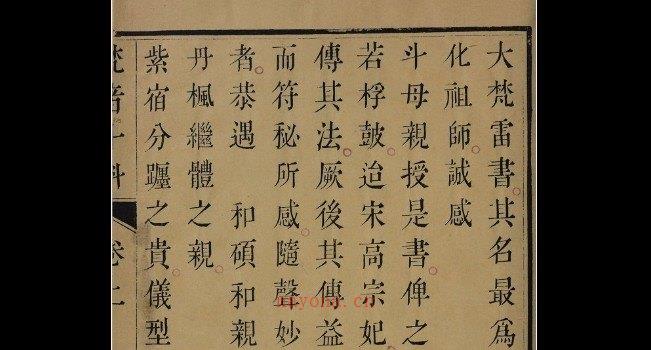 大梵雷書其名最為
化祖師誠感
斗母親授是書俾之
若桴鼓迨宋高宗妃
傳其法厥後其傳益
而符秘所感隨聲妙
者恭遇　和碩和親
丹楓繼體之親
紫宿分躔之貴儀型
梵音斗科　卷上